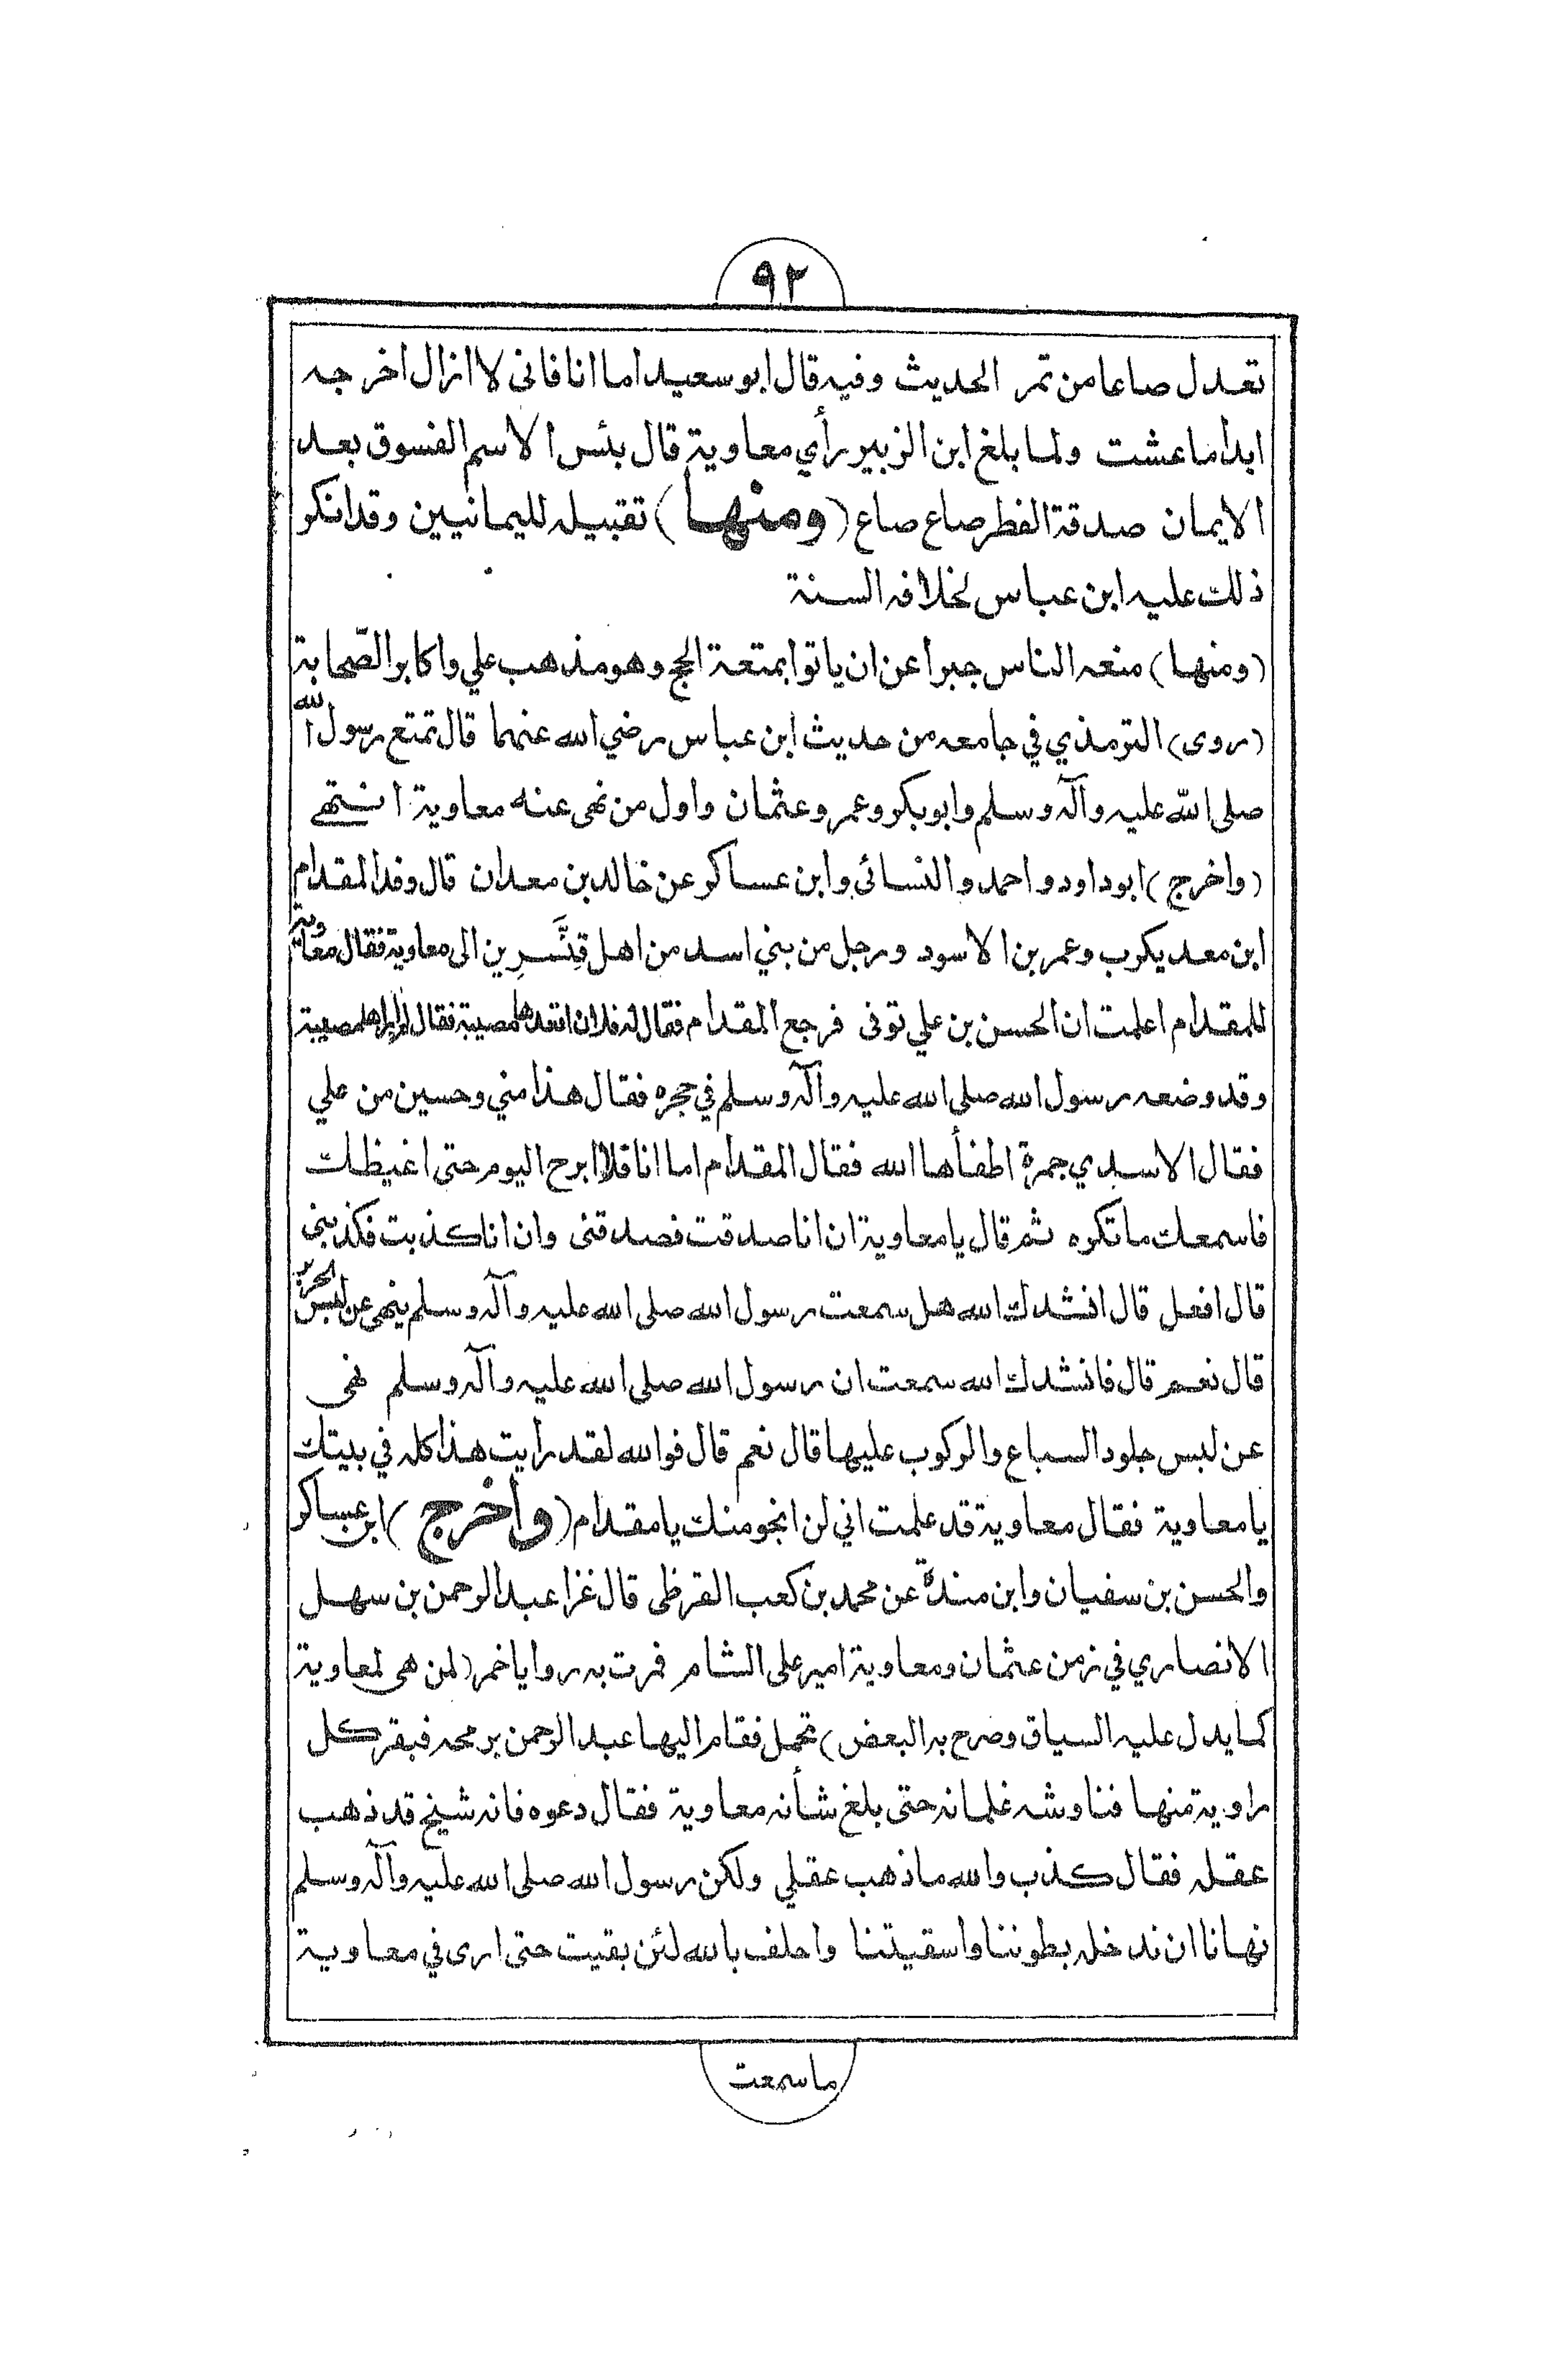 ٩٢
تعدل صاعا من تمر الحديث وفيه قال ابو سعيد اما انا فاني لا ازال اخرجه
ابدا ما عشت ولما بلغ ابن الزبير رأي معاوية قال بئس الاسم الفسوق بعد
الايمان صدقة الفطر صاع صاع (ومنها) تقبيله لليمانيين وقد انكر
ذلك عليه ابن عباس لخلافه السنة
(ومنها) منعه الناس جبرا عن ان ياتوا بمتعة الحج وهو مذهب علي واكابر الصّحابة
(روى) الترمذي في جامعه من حديث ابن عباس رضي الله عنهما قال تمتع رسول الله
صلى الله عليه وآله وسلم وابو بكر وعمر وعثمان واول من نهى عنه معاوية انتهى
(واخرج) ابو داود واحمد والنسائى وابن عساكر عن خالد بن معدان قال وفد المقدام
ابن معد يكرب وعمر بن الاسود ورجل من بني اسد من اهل قِنَّسرِين الى معاوية فقال معاوية
للمقدام اعلمت ان الحسن بن علي توفى فرجع المقدام فقال له فلان اتعدها مصيبة فقال لم لا اراها مصيبة
وقد وضعه رسول الله صلى الله عليه وآله وسلم في حجره فقال هذا مني وحسين من علي
فقال الاسدي جمرة اطفأها الله فقال المقدام اما انا فلا ابرح اليوم حتى اغيظك
فاسمعك ما تكره ثم قال يا معاوية ان انا صدقت فصدقنى وان انا كذبت فكذبنى
قال افعل قال انشدك الله هل سمعت رسول الله صلى الله عليه وآله وسلم ينهى عن لبس الحرير
قال نعم قال فانشدك الله سمعت ان رسول الله صلى الله عليه وآله وسلم نهى
عن لبس جلود السباع والركوب عليها قال نعم قال فوالله لقد رايت هذا كله في بيتك
يا معاوية فقال معاوية قد علمت اني لن انجو منك يا مقدام (واخرج) ابن عساكر
والحسن بن سفيان وابن مندة عن محمد بن كعب القرظى قال غزا عبد الرحمن بن سهل
الانصاري في زمن عثمان ومعاوية امير على الشام فمرت به روايا خمر (لمن هى لمعاوية
كما يدل عليه السياق وصرح به البعض) تحمل فقام اليها عبد الرحمن برمحه فبقر كل
راوية منها فناوشه غلمانه حتى بلغ شأنه معاوية فقال دعوه فانه شيخ قد ذهب
عقله فقال كذب والله ما ذهب عقلي ولكن رسول الله صلى الله عليه وآله وسلم
نهانا ان ندخله بطوننا واسقيتنا واحلف بالله لئن بقيت حتى ارى في معاوية
ما سمعت